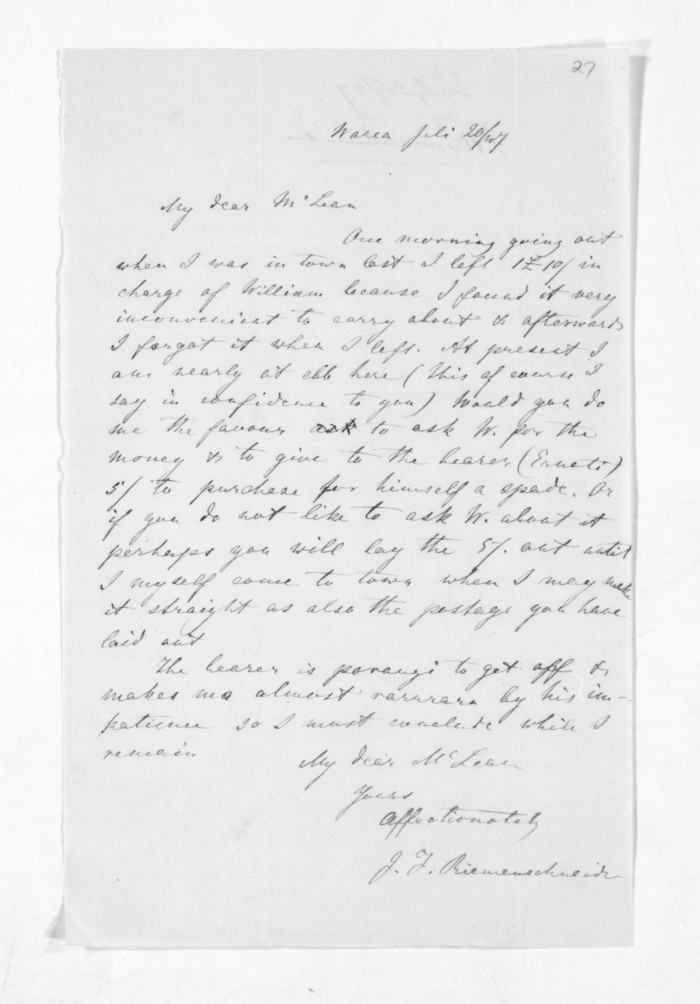 27
Warea Juli 20/47
My dear McLean
One morning going out
when I was in town last I left 1£ 10/ in
charge of William because I found it very
inconvenient to carry about & afterwards
I forgot it when I left. At present I
am nearly at ebb here (This of course I
say in confidence to you) Would you do
me the favour ask to ask W. for the
money & to give to the bearer (Erueti)
5/ to purchase for himself a spade. Or
if you do not like to ask W. about it
perhaps you will lay the 5/. out until
I myself come to town when I may make
it straight as also the postage you have
laid out
The bearer is porangi to get off &
makes me almost raruraru by his im-
patience so I must conclude while I
remain
My dear McLean
Yours
Affectionately
J. F. Riemenschneider